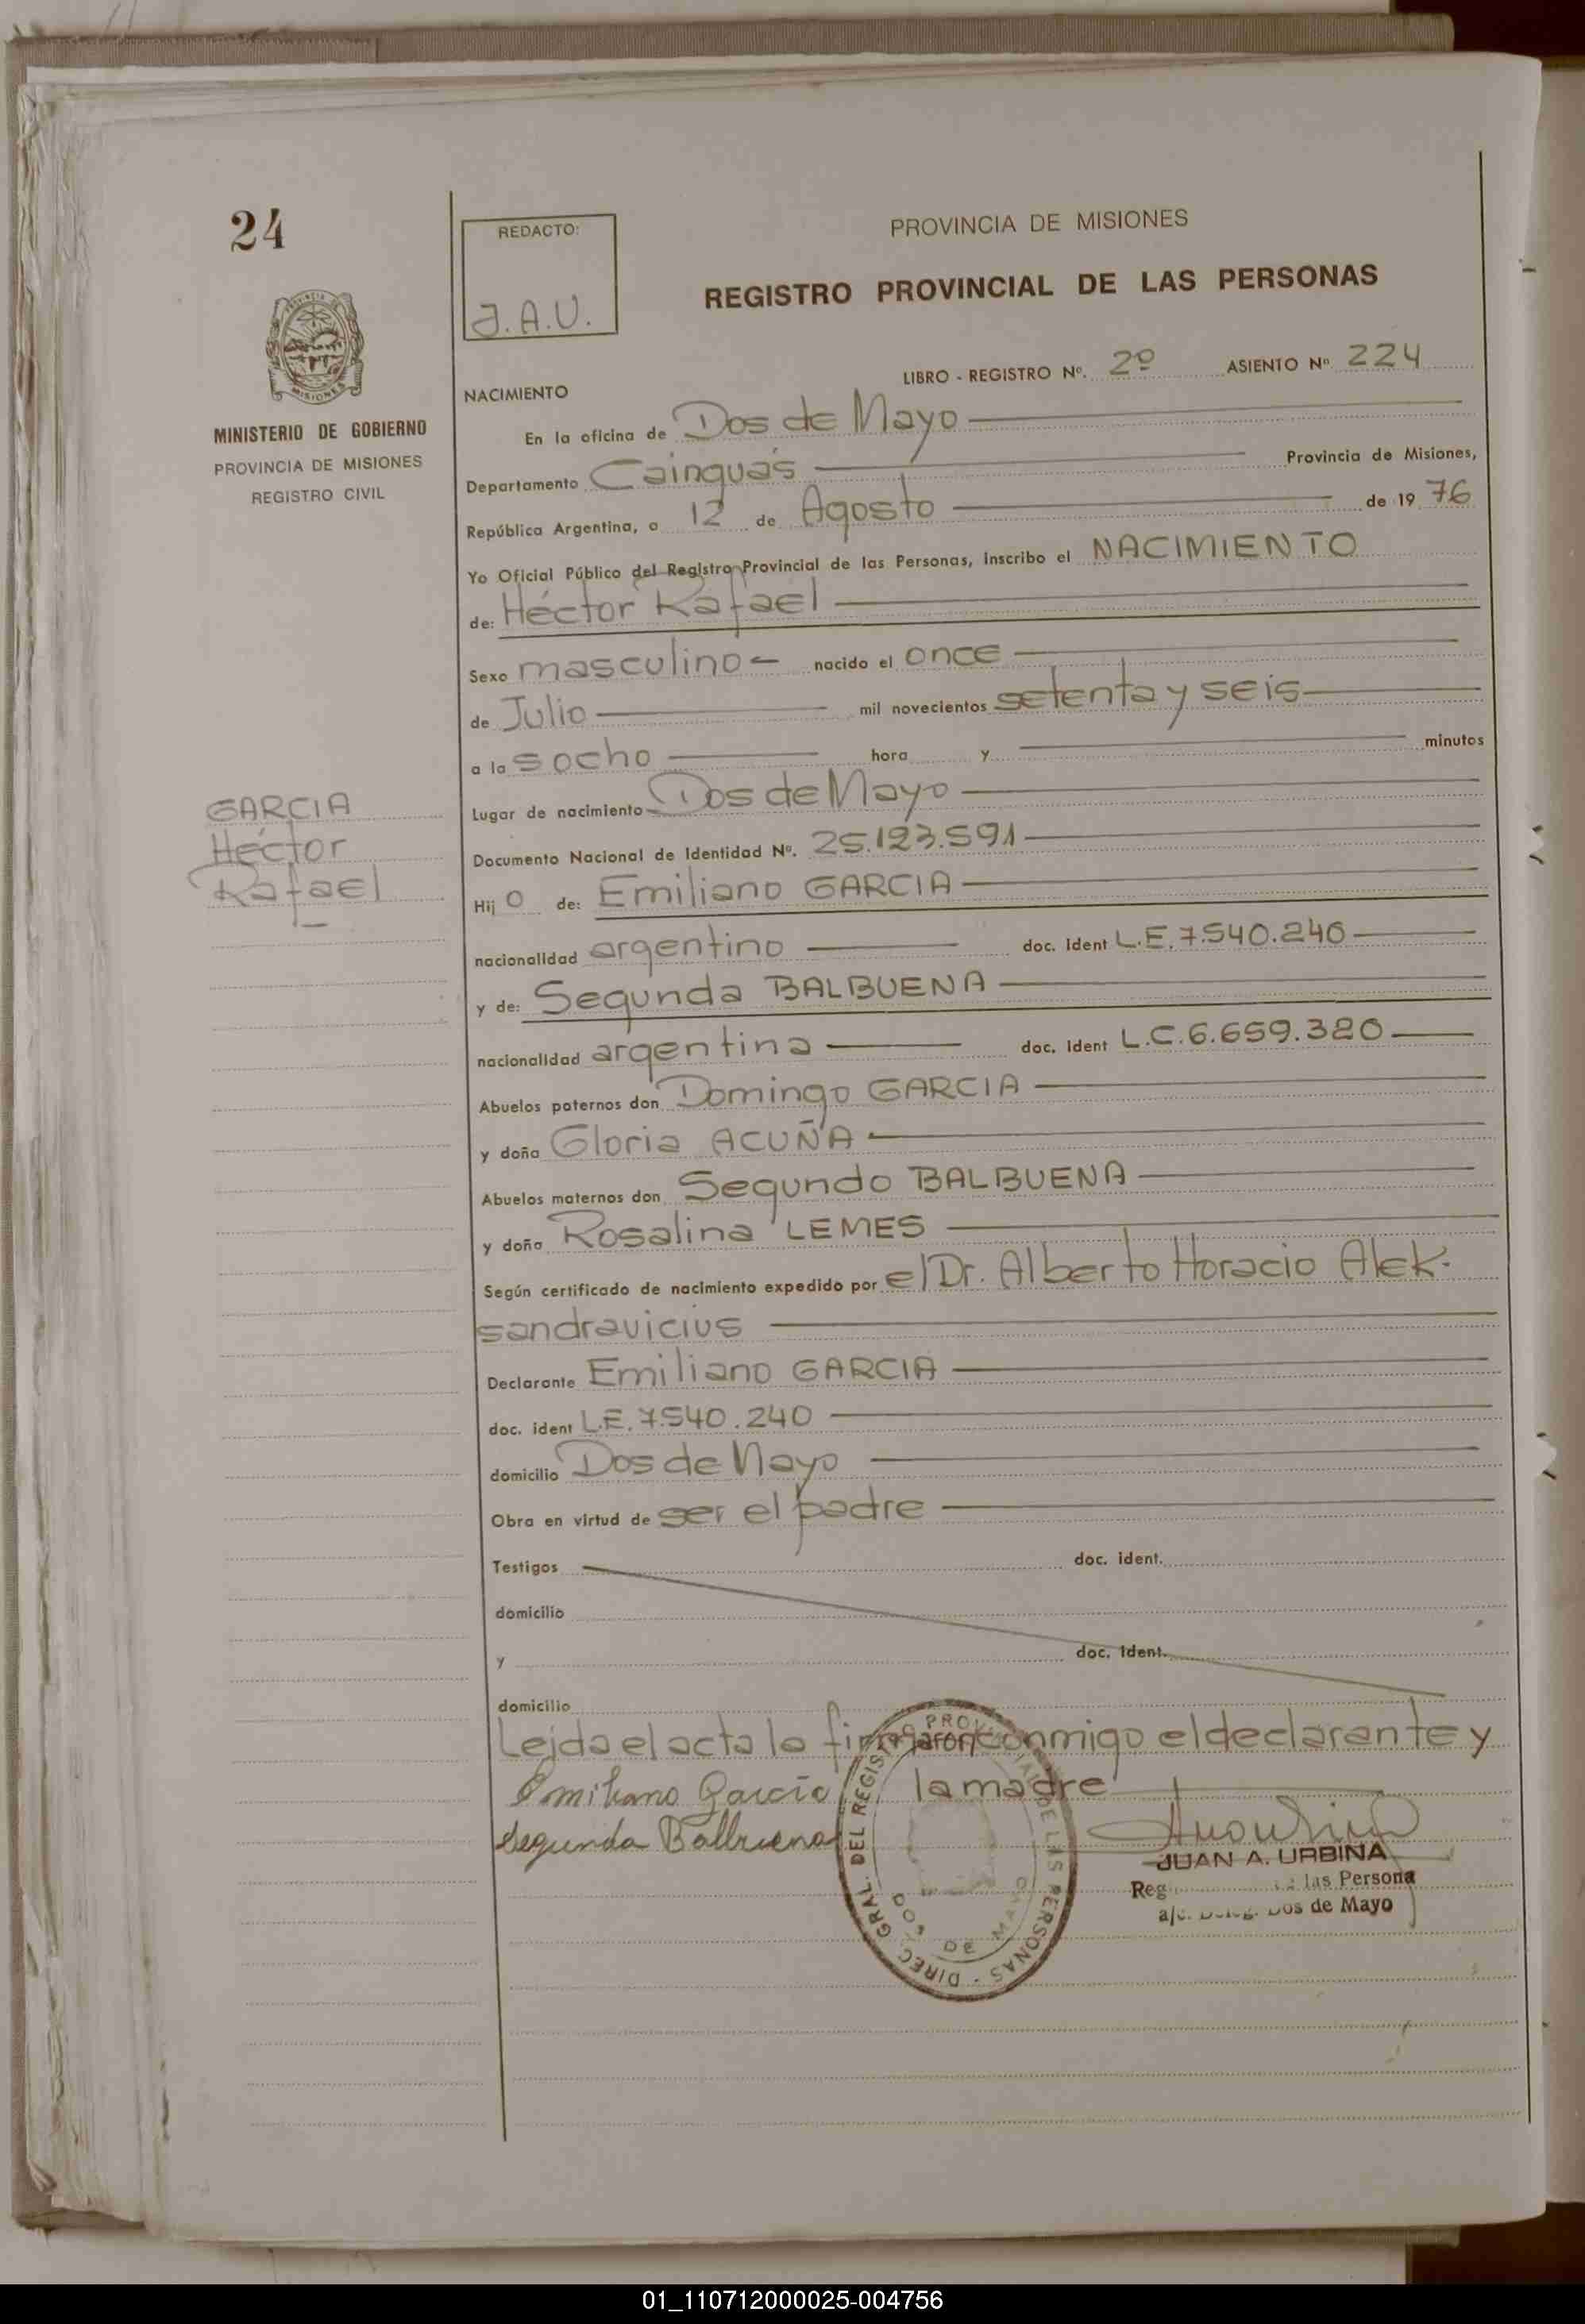 24
REDACTO:
J.A.U.
PROVINCIA DE MISIONES
REGISTRO PROVINCIAL DE LAS PERSONAS
MINISTERIO DE GOBIERNO
PROVINCIA DE MISIONES
REGISTRO CIVIL
LIBRO - REGISTRO Nº. 2º ASIENTO Nº 224
NACIMIENTO
En la oficina de Dos de Mayo
Departamento Cainguás Provincia de Misiones,
República Argentina, a 12 de Agosto de 1976
Yo Oficial Público del Registro Provincial de las Personas, inscribo el NACIMIENTO
de: Héctor Rafael
Sexo masculino nacido el once
de Julio mil novecientos setenta y seis
a las ocho hora y minutos
Lugar de nacimiento Dos de Mayo
GARCIA
Héctor
Rafael
Documento Nacional de Identidad Nº. 25.123.591
Hijo de: Emiliano GARCIA
nacionalidad argentino doc. ident L.E. 7.540.240
y de: Segunda BALBUENA
nacionalidad argentina doc. ident L.C. 6.659.320
Abuelos paternos don Domingo GARCIA
y doña Gloria ACUÑA
Abuelos maternos don Segundo BALBUENA
y doña Rosalina LEMES
Según certificado de nacimiento expedido por el Dr. Alberto Horacio Alek-
sandravicius
Declarante Emiliano GARCIA
doc. ident L.E. 7.540.240
domicilio Dos de Mayo
Obra en virtud de ser el padre
Testigos doc. ident.
domicilio
y doc. ident.
domicilio
Leída el acta la firmaron conmigo el declarante y
la madre
Emiliano Garcia
Segunda Balbuena
DIREC. GRAL. DEL REGISTRO PROVINCIAL DE LAS PERSONAS
DOS DE MAYO
JUAN A. URBINA
Reg las Persona
a/c. Deleg. Dos de Mayo
01_110712000025-004756